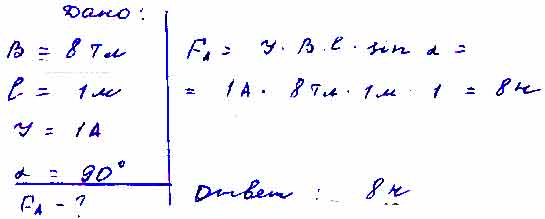 Дано:
B = 8 Тл
l = 1 м
I = 1А
α = 90°
Fл - ?
Fл = I · B · l · sin α =
= 1А · 8 Тл · 1м · 1 = 8 Н
Ответ: 8 Н